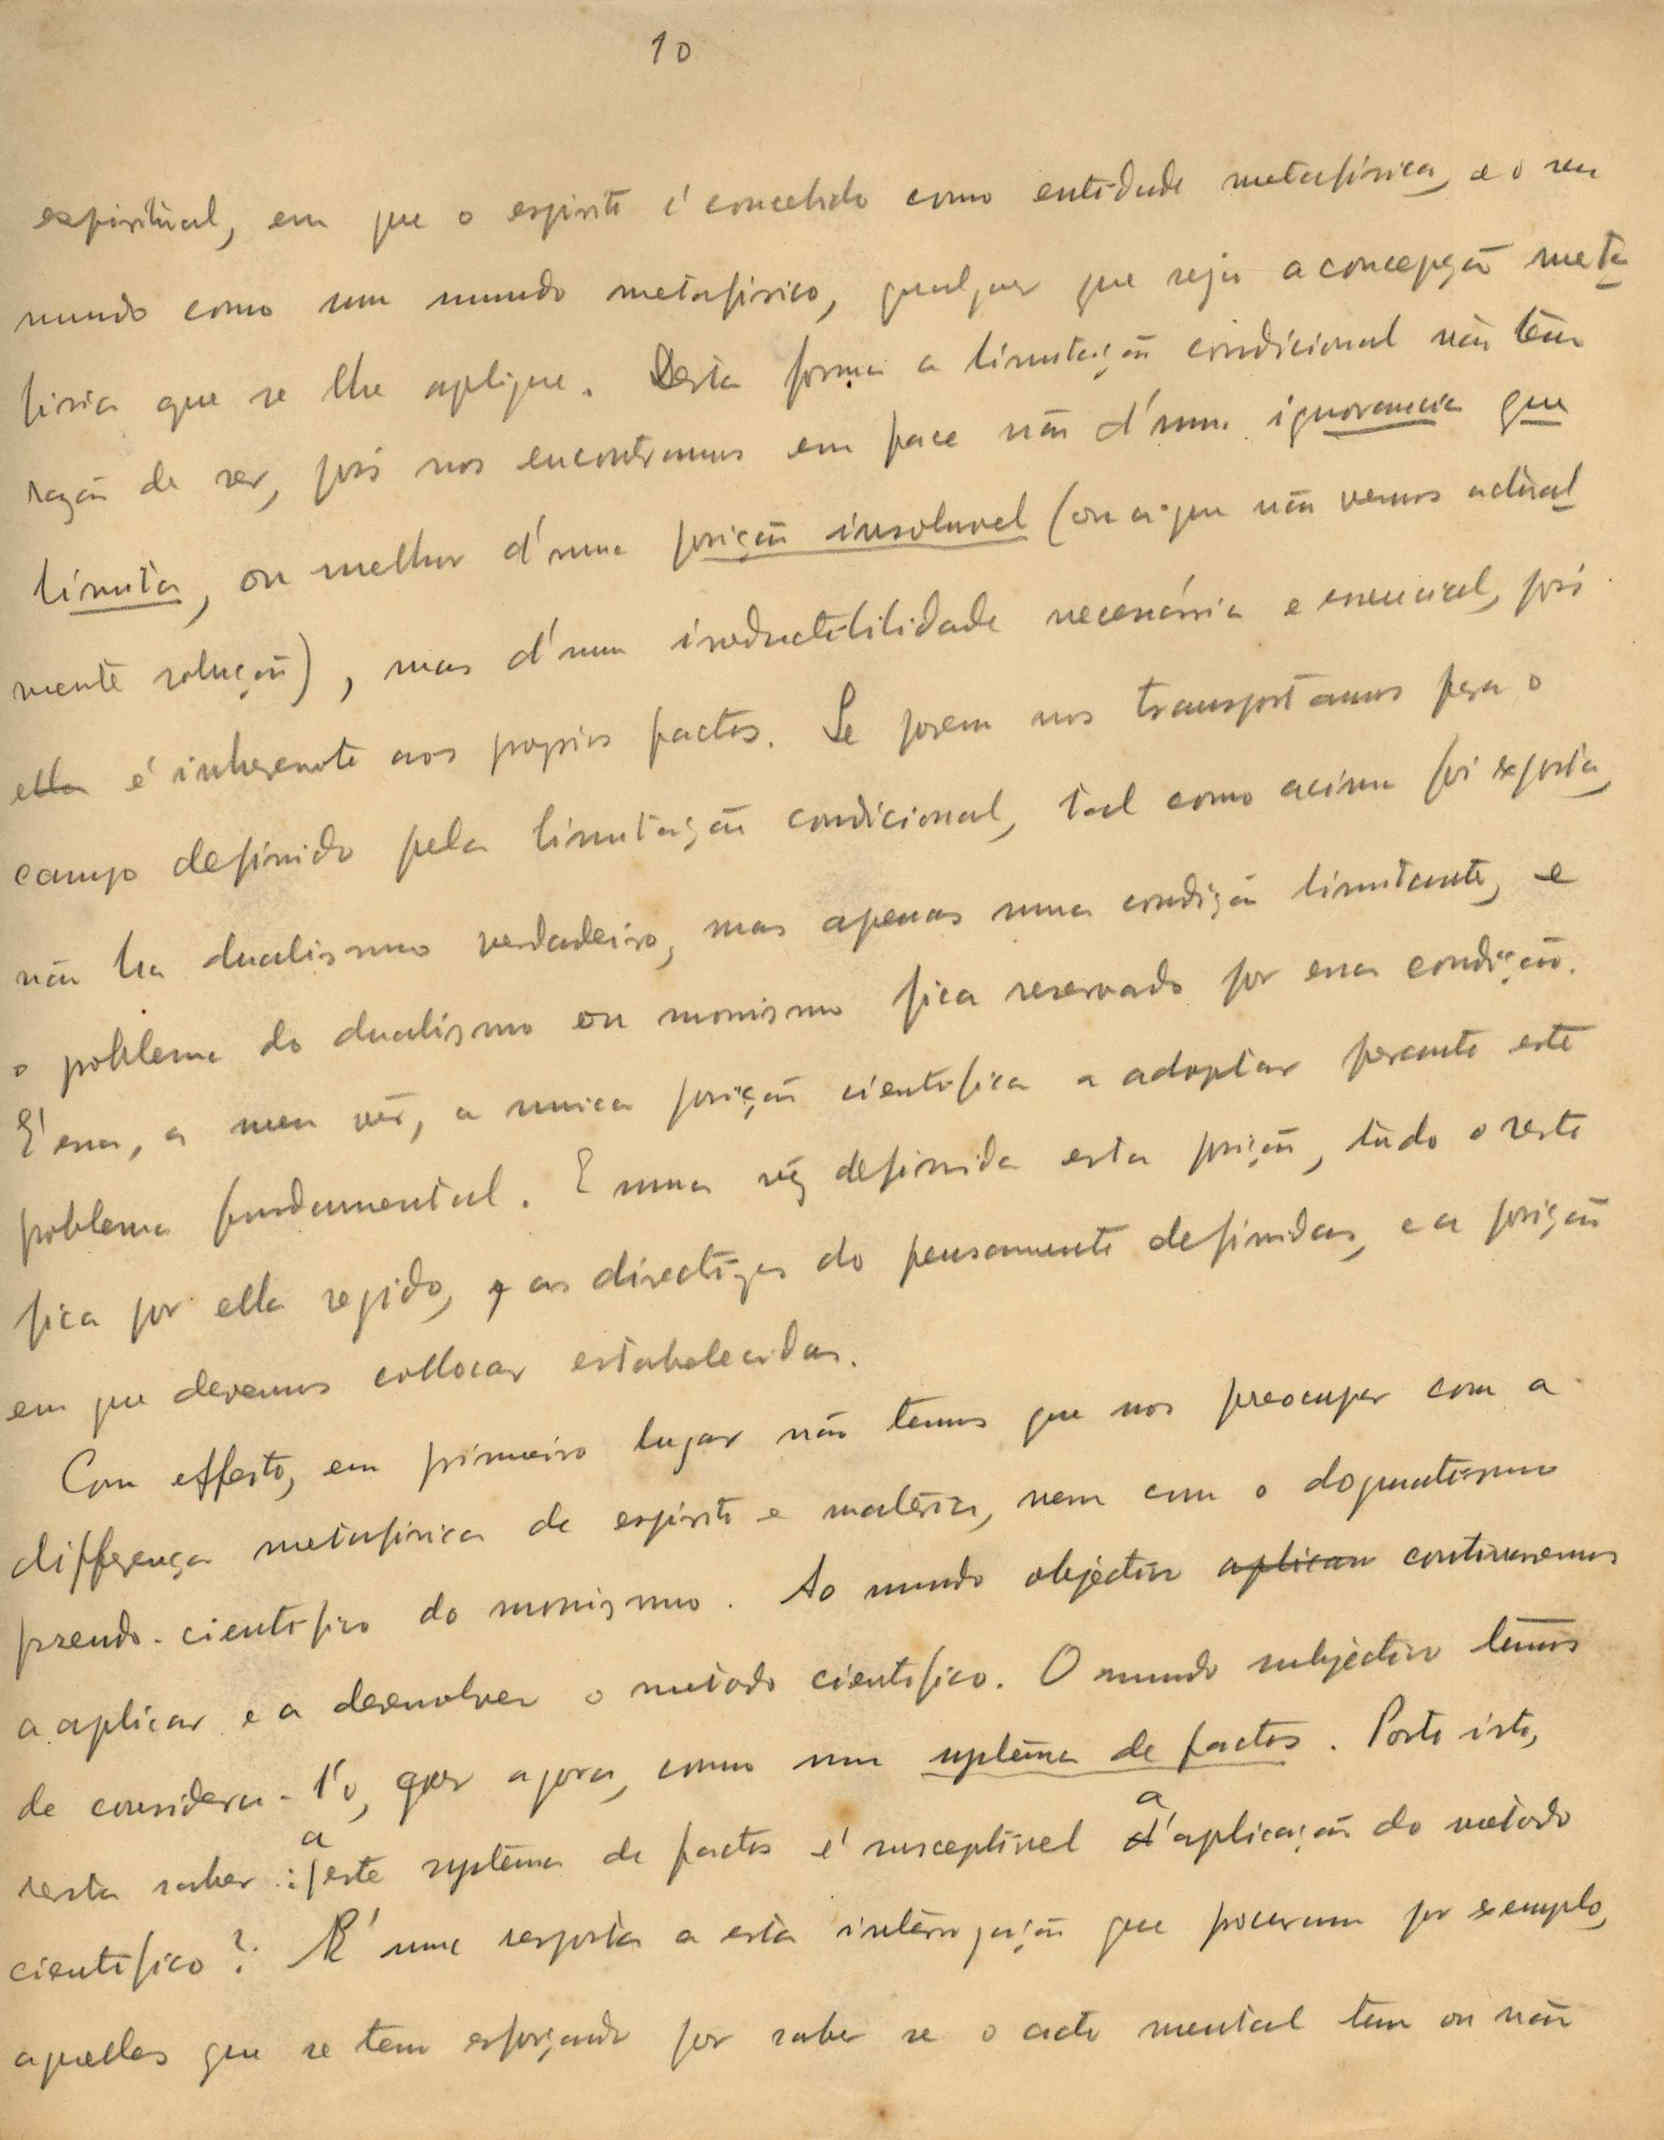 10
espiritual, em que o espirito é concebido como entidade metafisica, e o seu
mundo como um mundo metafisico, qualquer que seja a concepção meta
fisica que se lhe aplique. Desta forma a limitação condicional não tem
razão de ser, pois nos encontramos em face não d'uma ignorancia que
limita, ou melhor d'uma posição insoluvel (ou a que não vemos actual
mente solução), mas d'uma irreductibilidade necessária e essencial, pois
ella é inherente aos proprios factos. Se porem nos transportamos para o
campo definido pela limitação condicional, tal como acima foi exposta,
não ha dualismo verdadeiro, mas apenas uma condição limitante, e
o poblema do dualismo ou monismo fica reservado por essa condição.
É essa, a meu vêr, a unica posição cientifica a adoptar perante este
poblema fundamental. E uma vêz definida esta posição, tudo o resto
fica por ella regido, as directizes do pensamento definidas, e a posição
em que devemos collocar estabelecidas.
Com effeito, em primeiro lugar não temos que nos preocupar com a
differença metafisica de espirito e matéria, nem com o dogmatismo
pseudo-cientifico do monismo. Ao mundo objectivo aplicam continuaremos
a aplicar e a desenvolver o metodo cientifico. O mundo subjectivo temos
de considera-l'o, por agora, como um systema de factos. Posto isto,
resta saber: a
este systema de factos é susceptivel a d'aplicação do metodo
cientifico? É uma resposta a esta interrogação que procuram por exemplo,
aquelles que se tem esforçando por saber se o acto mental tem ou não